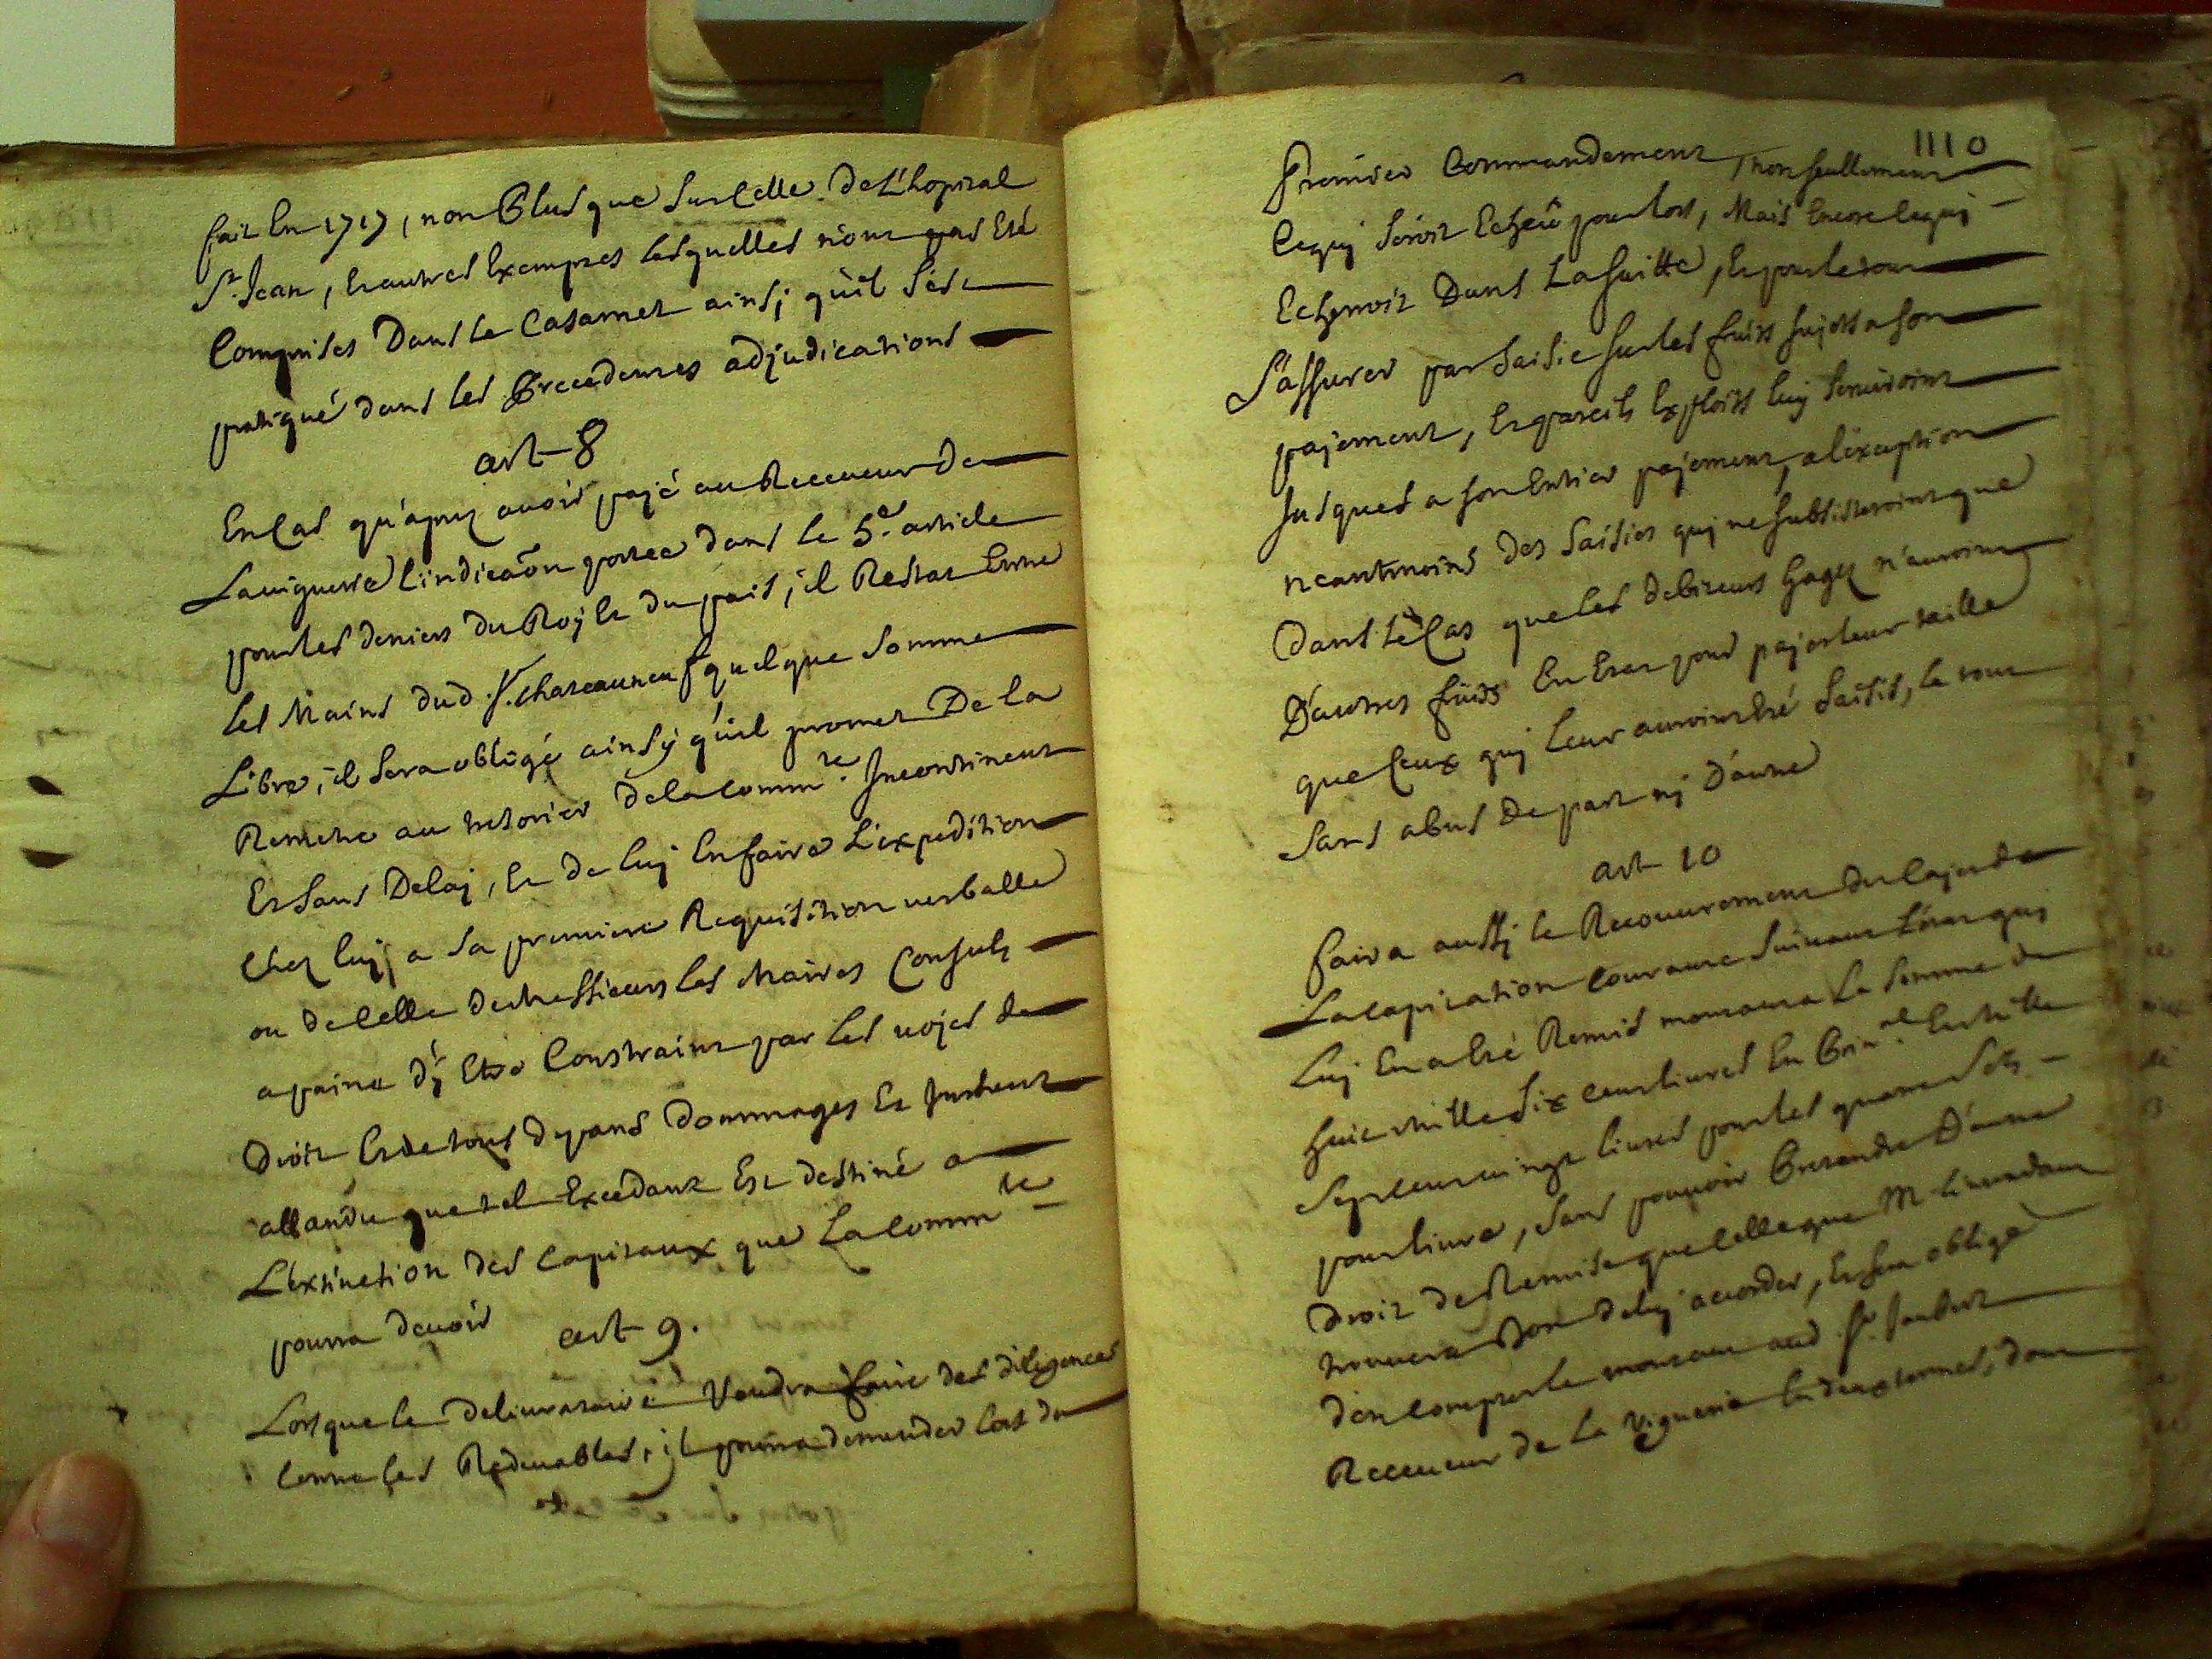 fait En 1717, non Plus que Sur Celle de L'hopital
St. Jean, Et autres Exemptes Lesquelles n'ont pas Eté
Comprises Dans le Casamet ainsj qu'il s'est
pratiqué dans les Precedentes adjudications
art 8
En Cas qu'apres avoir payé au Receveur de
La viguerie l'indicaõn portee dans le 5.e article
pour les deniers du Roj Et du païs, il Restat Entre
les Mains dud. Sr. Chateauneuf quelque Somme
Libre, il Sera obligé ainsy qu'il promet De la
Remetre au tresorier de la comm.té Incontinent
Et Sans Delaj, Et de luj En faire L'expedition
Chez luj, a Sa premiere Requisition verballe
ou de Celle de Messieurs les Maires Consuls
a paine d'y Etre Constraint par les voyes de
Droit Et de tous depans Dommages Et Interest
attandu que tel Excedant Est destiné a
L'extinction des Capitaux que La Comm.té
pourra devoir
art 9.
Lors que le Delivrataire Voudra faire des diligences
Contre les Redevables, il pourra demander lors du
1110
Premier Commandement, non seullement
Ce quj Seroit Echeu pour lors, Mais Encore Ce quj
Echerroit Dans La Suitte, Et pour le tout
S'assurer par Saisie Sur les fruits Sujets a Son
payement, Et pareils Exploits luj Serviroint
Jusques a Son Entier payement, a l'exception
neantmoins des Saisies quj ne Subsisteroint que
Dans le Cas que les debiteurs Gagez n'auroint
D'autres fruits En Etat pour payer leur taille
que Ceux quj leur auroint Eté Saisis, le tout
Sans abus de part nj D'autre
art 10
faira aussj le Recouvrement du Cajer de
La Capitation Courante Suivant L'etat quj
Luj En a Eté Remis montant a la Somme de
huit mille Six Cent livres En Prin.al Et mille
Sept Cent vingt livres pour les quatre Sols
pour livre, Sans pouvoir Pretendre D'autre
Droit de Remise que Celle que M. L'intendant
trouvera Bon de luj acorder, Et Sera obligé
d'en Compter le montant aud. Sr. Jaubert
Receveur de la Viguerie En deux termes, dont